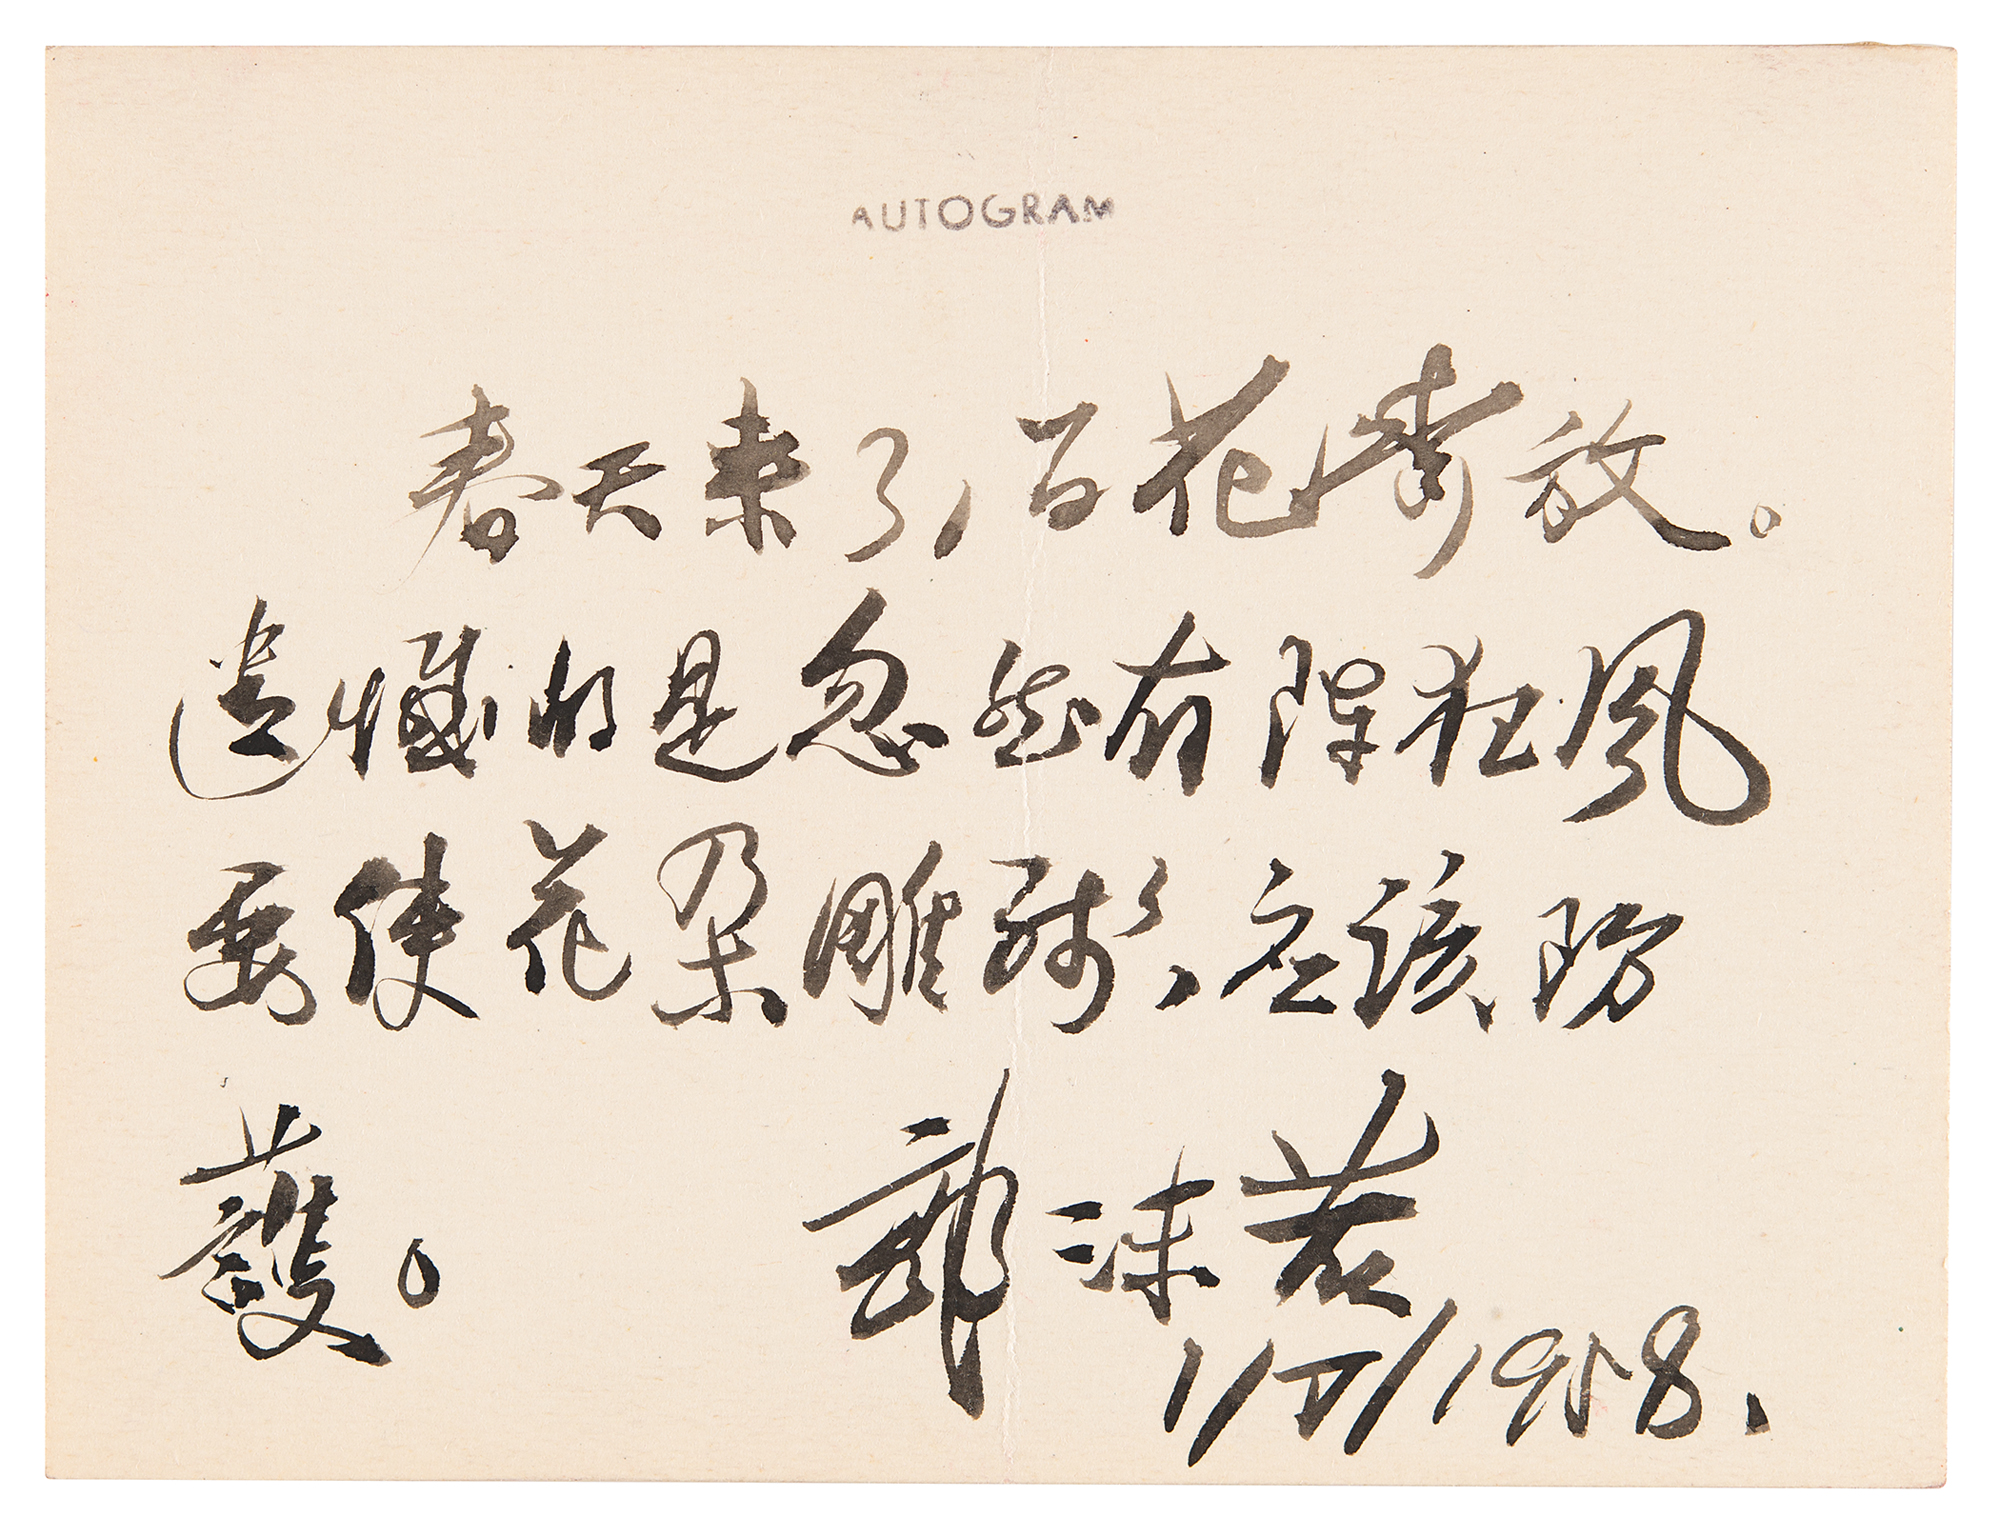 AUTOGRAM
春天来了,百花齊放。
遗憾的是忽然有陣狂風
要使花朵雕残,应該防
護。
郭沫若
1/IV/1958.